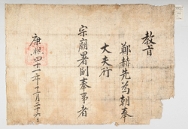 教旨
鄭赫先爲朝奉
大夫行
宗廟署副奉事者
康熙四十一年十二月二十六日